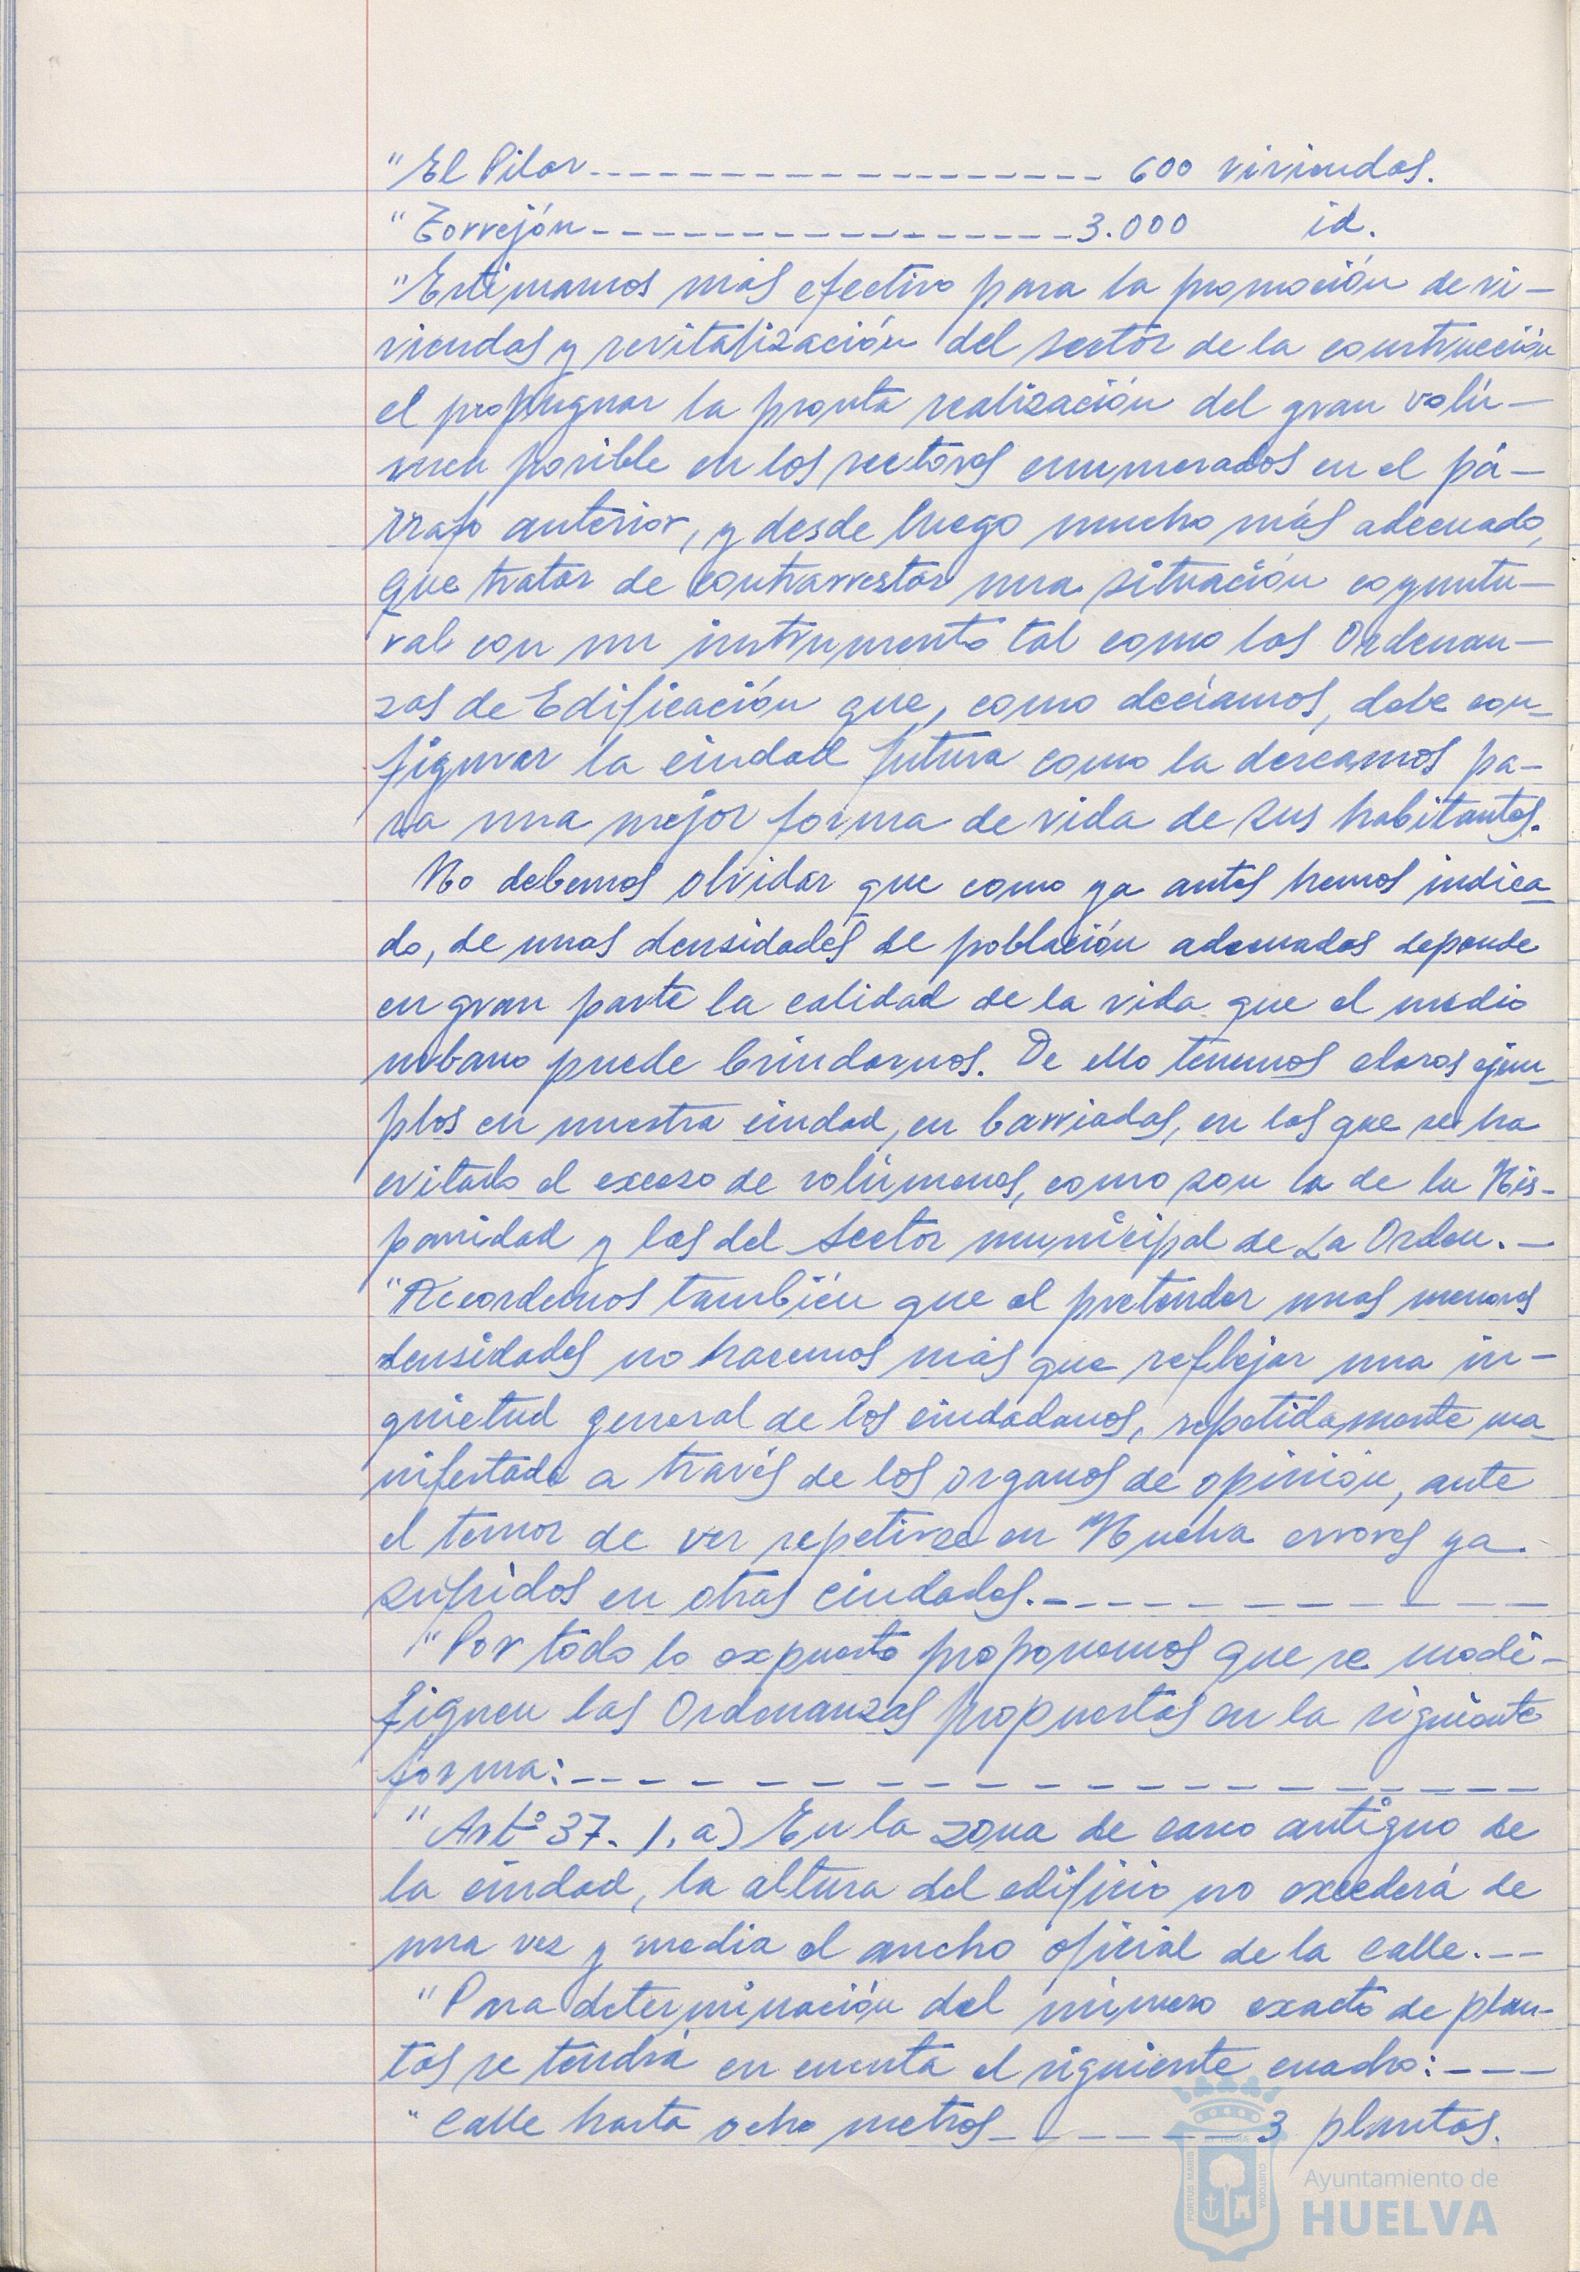 "El Pilar------------------- 600 viviendas.
"Torrejón------------------3.000 id.
"Estimamos más efectivo para la promoción de vi-
viendas y revitalización del sector de la construcción
el propugnar la pronta realización del gran volú-
men posible en los sectores enumerados en el pá-
rrafo anterior, y desde luego mucho más adecuado,
que tratar de contrarrestar una situación coyuntu-
ral con un instrumento tal como las Ordenan-
zas de Edificación que, como decíamos, debe con-
figurar la ciudad futura como la deseamos pa-
ra una mejor forma de vida de sus habitantes.
No debemos olvidar que como ya antes hemos indica-
do, de unas densidades de población adecuadas depende
en gran parte la calidad de la vida que el medio
urbano puede brindarnos. De ello tenemos claros ejem-
plos en nuestra ciudad, en barriadas, en las que se ha
evitado el exceso de volúmenes, como son la de la His-
panidad y las del Sector municipal de La Orden.-
"Recordemos también que al pretender unas menores
densidades no hacemos más que reflejar una in-
quietud general de los ciudadanos, repetidamente ma-
nifestada a través de los organos de opinión, ante
el temor de ver repetirse en Huelva errores ya
sufridos en otras ciudades.-------------
"Por todo lo expuesto proponemos que se modi-
fiquen las Ordenanzas propuestas en la siguiente
forma:------------------
"Artº 37. 1. a) En la zona de casco antiguo de
la ciudad, la altura del edificio no excederá de
una vez y media el ancho oficial de la calle.--
"Para determinación del número exacto de plan-
tas se tendrá en cuenta el siguiente cuadro:---
"Calle hasta ocho metros--------3 plantas.
PORTUS MARIS
ET TERRAE
CUSTODIA
Ayuntamiento de
HUELVA